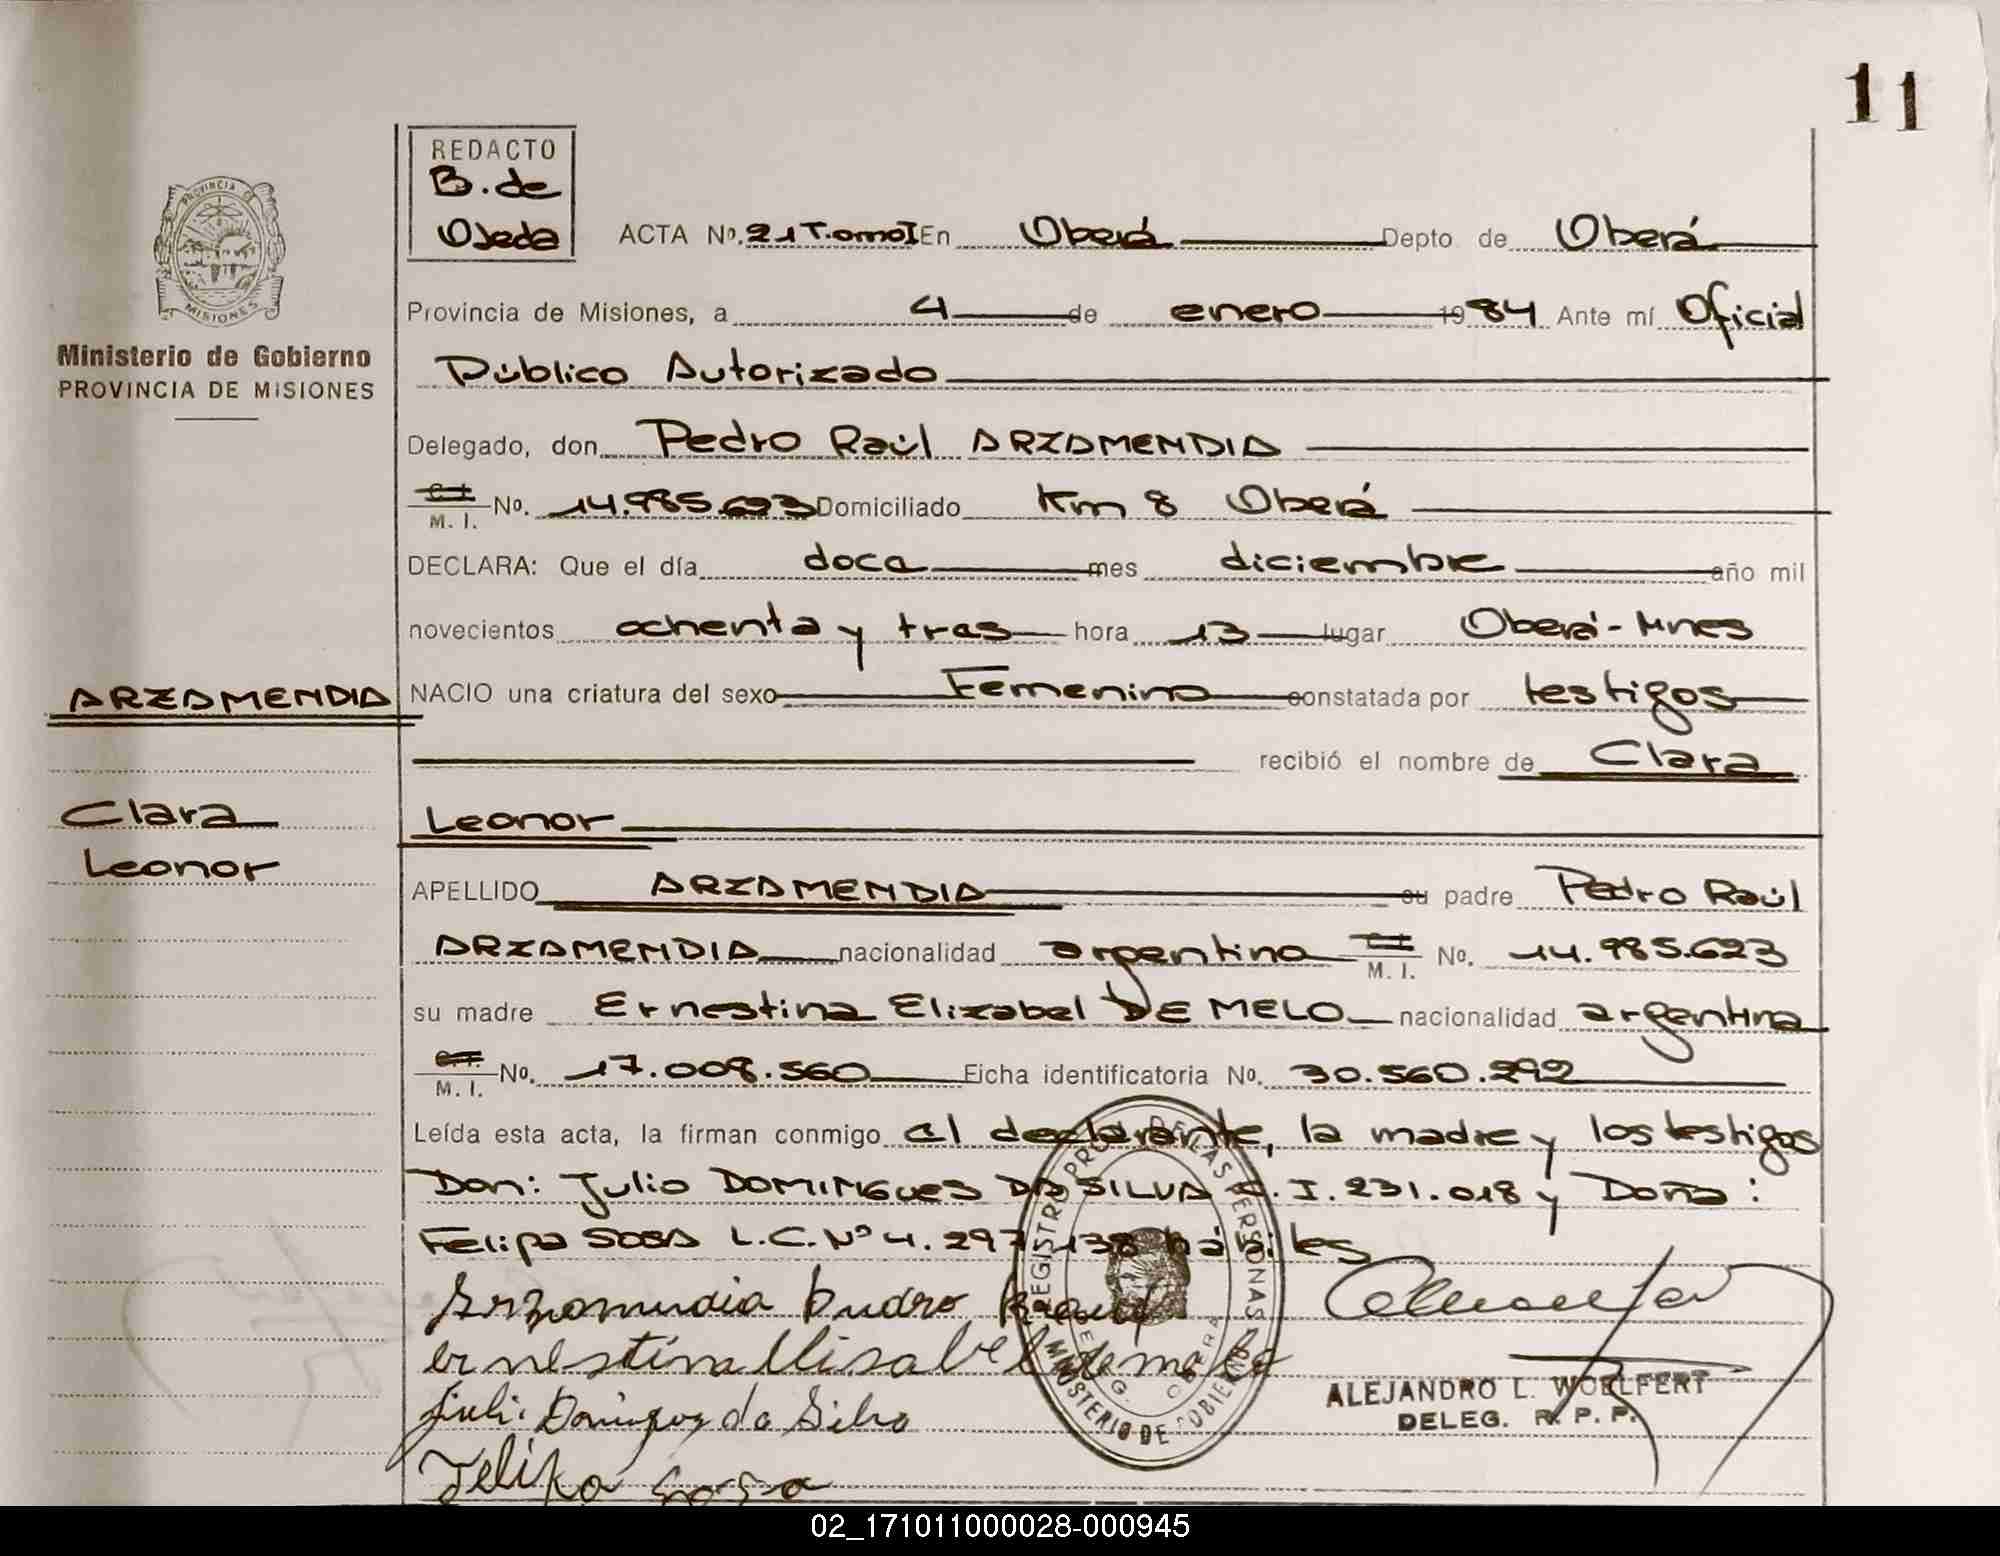 11
REDACTO
B. de
Ojeda
ACTA Nº. 21 Tomo I En Oberá Depto de Oberá
PROVINCIA DE
MISIONES
Ministerio de Gobierno
PROVINCIA DE MISIONES
Provincia de Misiones, a 4 de enero 1984 Ante mí Oficial
Público Autorizado
Delegado, don Pedro Raúl ARZAMENDIA
C. I.
M. I. No. 14.985.623 Domiciliado Km 8 Oberá
DECLARA: Que el día doce mes diciembre año mil
novecientos ochenta y tres hora 13 lugar Oberá - Mnes
ARZAMENDIA
NACIO una criatura del sexo Femenino constatada por testigos
recibió el nombre de Clara
Clara
Leonor
Leonor
APELLIDO ARZAMENDIA su padre Pedro Raúl
ARZAMENDIA nacionalidad argentina C. I. M. I. No. 14.985.623
su madre Ernestina Elizabel DE MELO nacionalidad argentina
C. I.
M. I. No. 17.008.560 Ficha identificatoria No. 30.560.292
Leída esta acta, la firman conmigo el declarante, la madre y los testigos
Don: Julio DOMINGUES DA SILVA C. I. 231.018 y Doña:
Felipa SOSA L.C. Nº 4.297.138 hábiles
Arzamendia Pedro Raul
ernestina Elisabel de melo
Juli. Domingos da Silva
Felipa Sosa
REGISTRO PROV. DE LAS PERSONAS
MINISTERIO DE GOBIERNO
DELEG. OBERA
ALEJANDRO L. WOELFERT
DELEG. R. P. P.
02_171011000028-000945